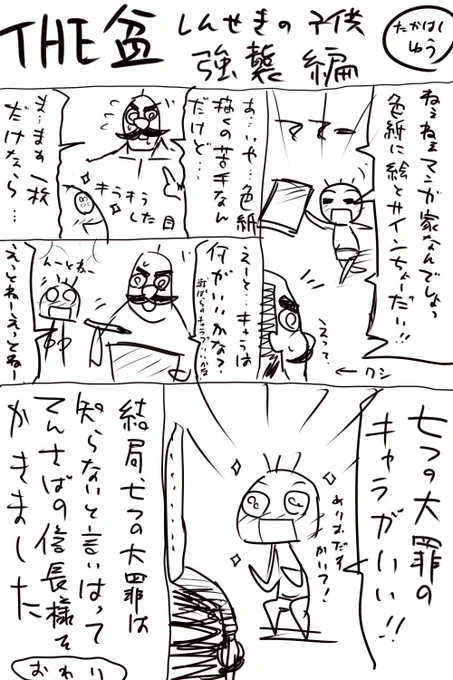 THE盆
しんせきの子供
強襲編
たかはし
しゅう
ねぇねぇマンガ家なんでしょっ
色紙に絵とサインちょーだい!!
てててー
えっ…
←ワシ
あ…いや…色紙
描くの苦手なん
だけど…
キラキラ
した目
ま…まあ一枚
だけなら…
えーと…キャラは
何がいいかな?
んーとねー
えっとねーえっとねー
七つの大罪の
キャラがいい!!
めりおだす
かいて!
結局、七つの大罪は
知らないと言いはって
てんさばの信長様を
かきました
おわり